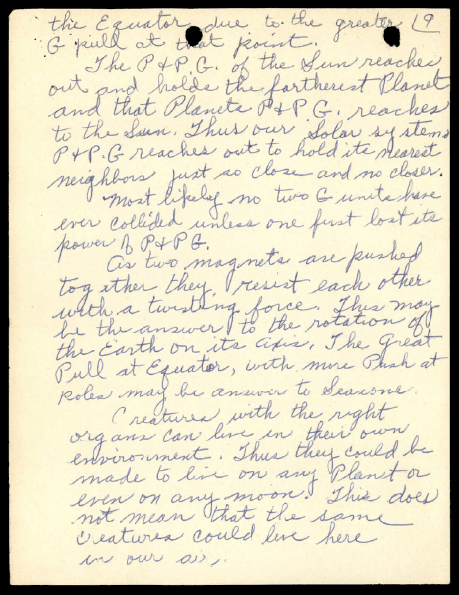 the Equator due to the greater 9
G pull at that point.
The P & P.G. of the Sun reaches
out and holds the fartherest Planet
and that Planets P & P.G. reaches
to the Sun. Thus our Solar systems
P & P.G reaches out to hold its nearest
neighbors just so close and no closer.
Most likely no two G units have
ever collided unless one first lost its
power of P & P G.
As two magnets are pushed
together they resist each other
with a twisting force. This may
be the answer to the rotation of
the Earth on its axis. The Great
Pull at Equator, with more Push at
poles may be answer to Seasons.
Creatures with the right
organs can live in their own
environment. Thus they could be
made to live on any Planet or
even on any moon. This does
not mean that the same
Creatures could live here
in our air.